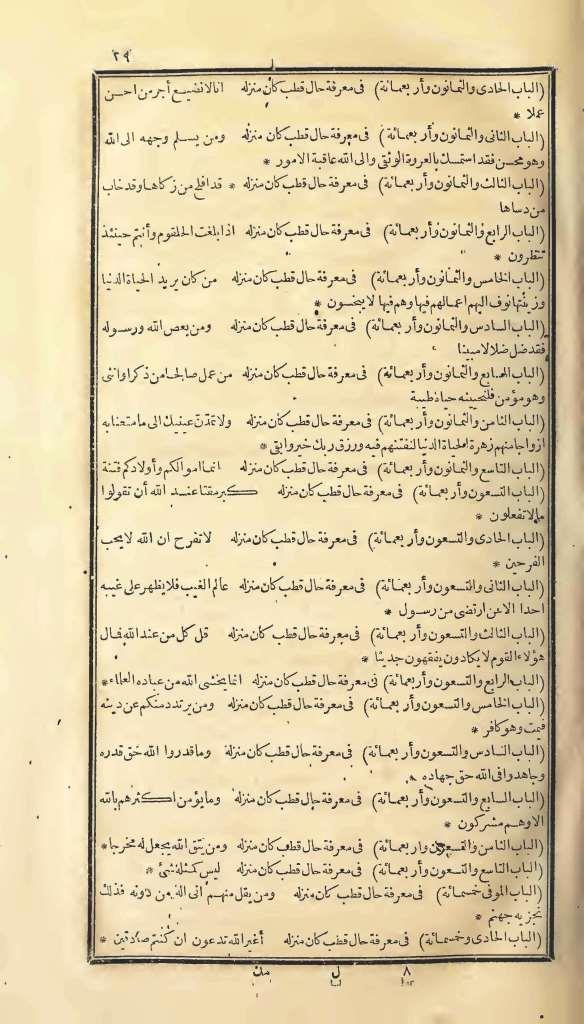 ٢٩
(الباب الحادى والثمانون وأربعمائة) فى معرفة حال قطب كان منزله انا لا نضيع أجر من احسن
عملا *
(الباب الثانى والثمانون وأربعمائة) فى معرفة حال قطب كان منزله ومن يسلم وجهه الى الله
وهو محسن فقد استمسك بالعروة الوثقى والى الله عاقبة الامور *
(الباب الثالث والثمانون وأربعمائة) فى معرفة حال قطب كان منزله * قد افلح من زكاها وقد خاب
من دساها
(الباب الرابع والثمانون وأربعمائة) فى معرفة حال قطب كان منزله اذا بلغت الحلقوم وأنتم حينئذ
تنظرون *
(الباب الخامس والثمانون وأربعمائة) فى معرفة حال قطب كان منزله من كان يريد الحياة الدنيا
وزينتها نوف اليهم اعمالهم فيها وهم فيها لا يبخسون *
(الباب السادس والثمانون وأربعمائة) فى معرفة حال قطب كان منزله ومن يعص الله ورسوله
فقد ضل ضلالا مبينا
(الباب السابع والثمانون وأربعمائة) فى معرفة حال قطب كان منزله من عمل صالحا من ذكر او انثى
وهو مؤمن فلنحيينه حياة طيبة
(الباب الثامن والثمانون وأربعمائة) فى معرفة حال قطب كان منزله ولا تمدّنّ عينيك الى ما متعنا به
ازواجا منهم زهرة الحياة الدنيا لنفتنهم فيه ورزق ربك خير وابقى *
(الباب التاسع والثمانون وأربعمائة) فى معرفة حال قطب كان منزله انما اموالكم وأولادكم فتنة
(الباب التسعون وأربعمائة) فى معرفة حال قطب كان منزله كبر مقتا عند الله أن تقولوا
ما لا تفعلون *
(الباب الحادى والتسعون وأربعمائة) فى معرفة حال قطب كان منزله لا تفرح ان الله لا يحب
الفرحين *
(الباب الثانى والتسعون وأربعمائة) فى معرفة حال قطب كان منزله عالم الغيب فلا يظهر على غيبه
احدا الا من ارتضى من رسول *
(الباب الثالث والتسعون وأربعمائة) فى معرفة حال قطب كان منزله قل كل من عند الله فمال
هؤلاء القوم لا يكادون يفقهون حديثا *
(الباب الرابع والتسعون وأربعمائة) فى معرفة حال قطب كان منزله انما يخشى الله من عباده العلماء *
(الباب الخامس والتسعون وأربعمائة) فى معرفة حال قطب كان منزله ومن يرتدد منكم عن دينه
فيمت وهو كافر *
(الباب السادس والتسعون وأربعمائة) فى معرفة حال قطب كان منزله وما قدروا الله حق قدره
وجاهدوا فى الله حق جهاده *
(الباب السابع والتسعون وأربعمائة) فى معرفة حال قطب كان منزله وما يؤمن اكثرهم بالله
الا وهم مشركون *
(الباب الثامن والتسعون واربعمائة) فى معرفة حال قطب كان منزله ومن يتق الله يجعل له مخرجا *
(الباب التاسع والتسعون وأربعمائة) فى معرفة حال قطب كان منزله ليس كمثله شئ *
(الباب الموفى خمسمائة) فى معرفة حال قطب كان منزله ومن يقل منهم انى اله من دونه فذلك
نجزيه جهنم *
(الباب الحادى وخمسمائة) فى معرفة حال قطب كان منزله أغير الله تدعون ان كنتم صادقين *
٨ ل من